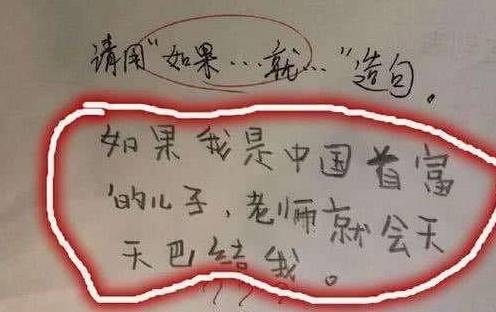 请用“如果…就…”造句。
如果我是中国首富
的儿子，老师就会天
天巴结我。